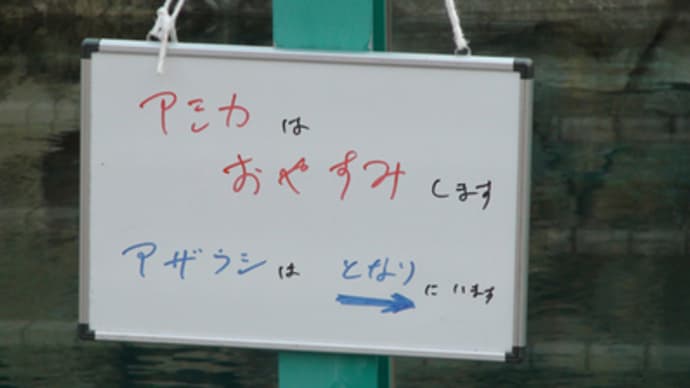 アシカは
おやすみします
アザラシは となり
→ にいます